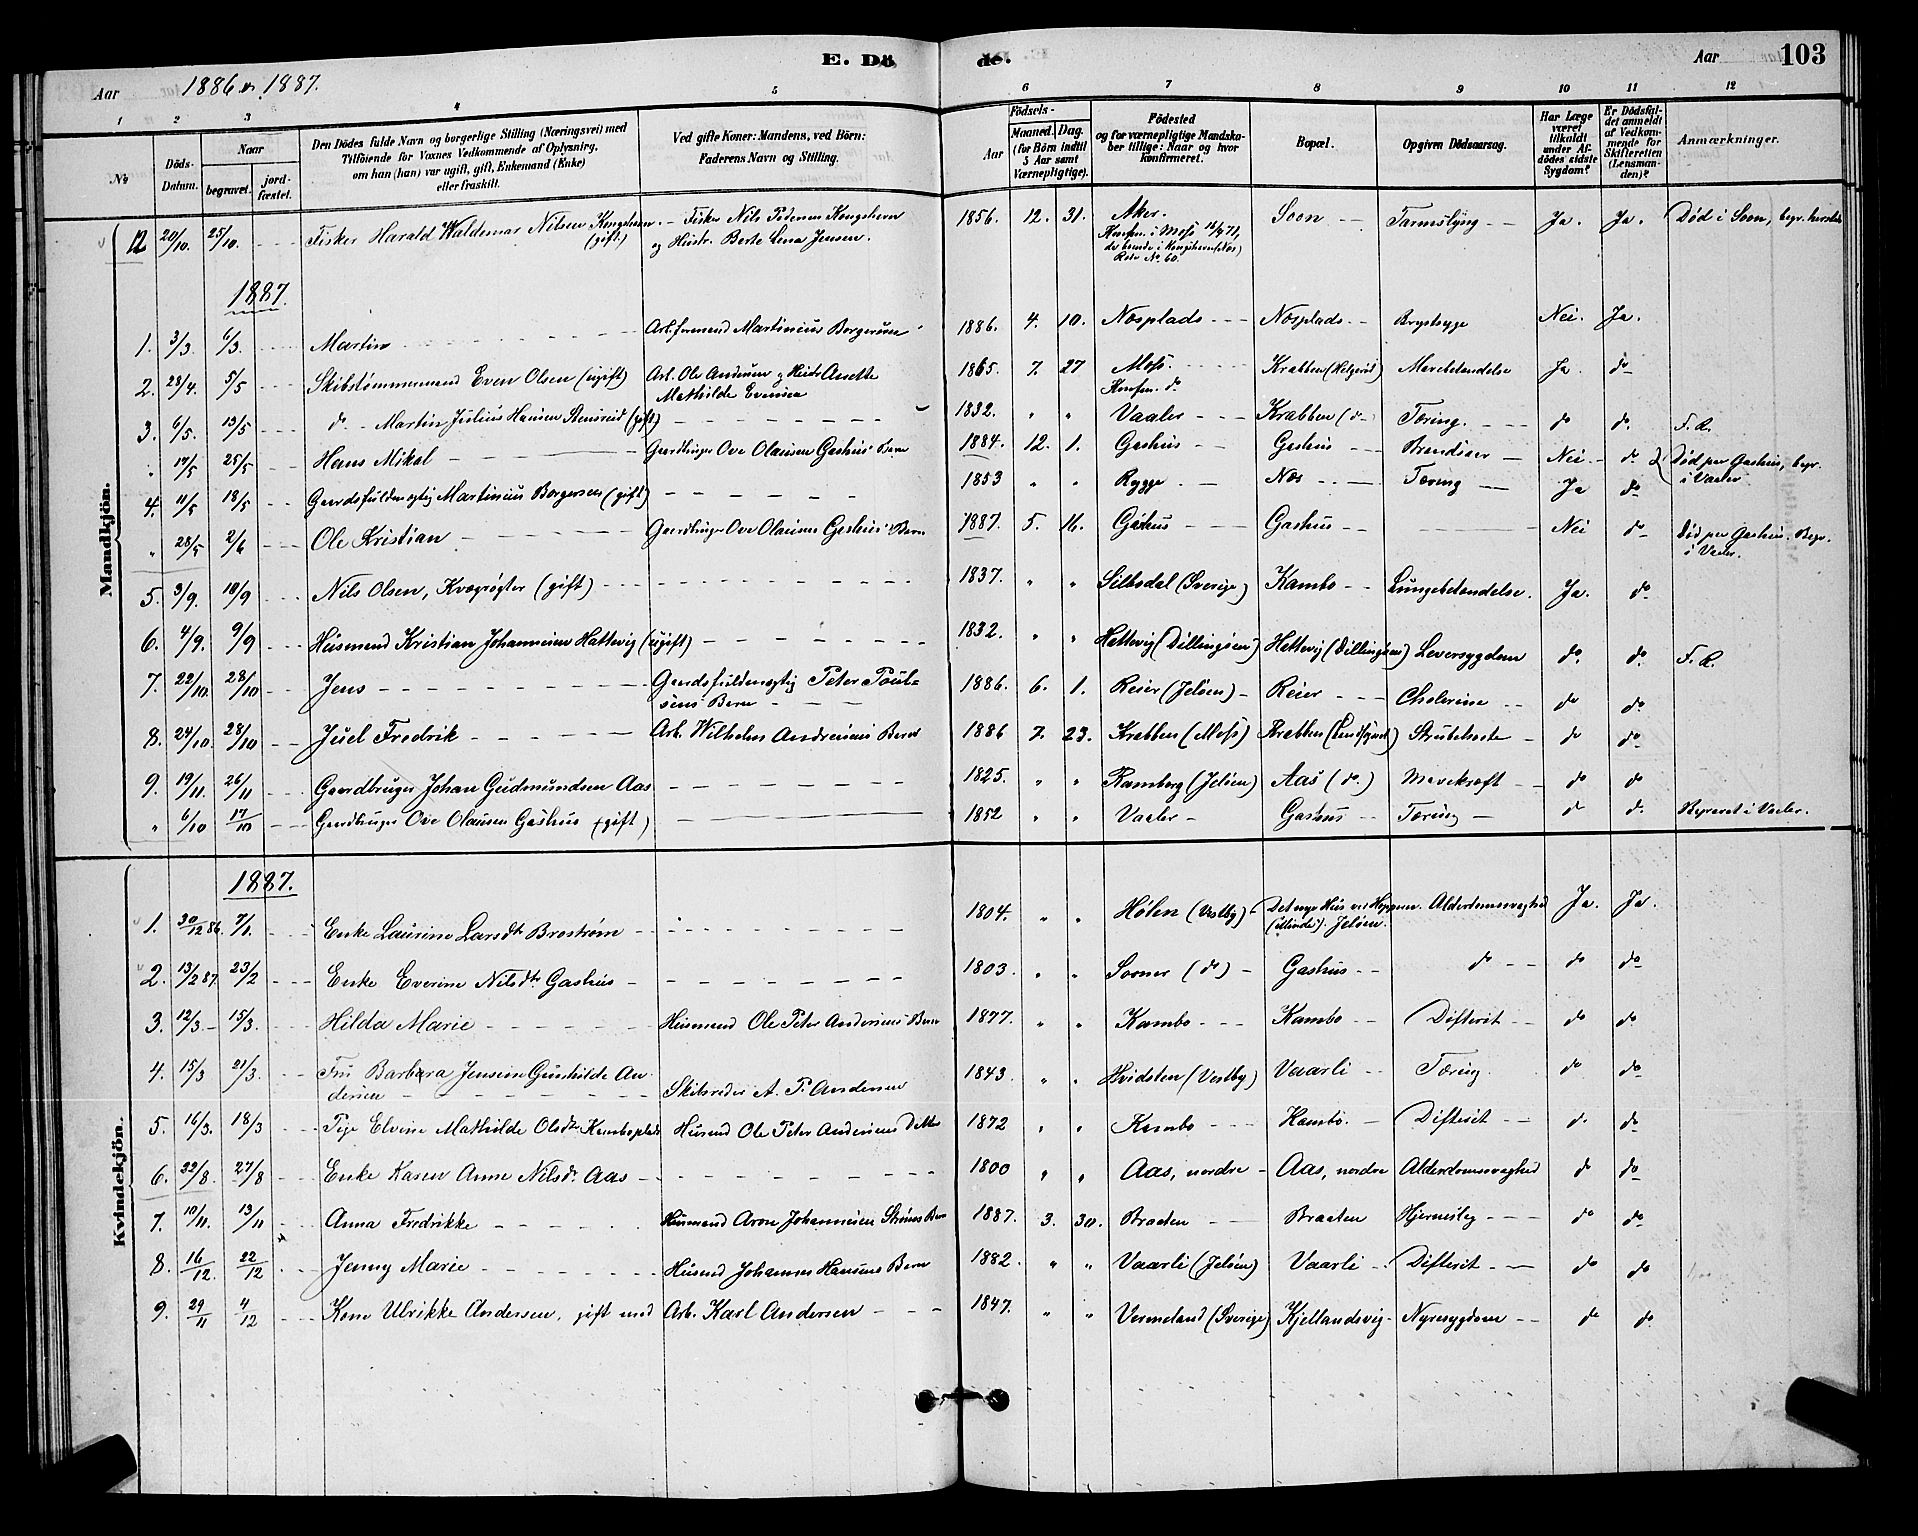 E. Dö de.
Aar 1886 og 1887.
Aar 103
1 2 3 4 5 6 7 8 9 10 11 12
No
Döds-Datum.
Naar
begravet.
jord-fæstet.
Den Dödes fulde Navn og borgerlige Stilling (Næringsvei) med
Tilföiende for Voxnes Vedkommende af Oplysning,
om han (hun) var ugift, gift, Enkemand (Enke)
eller fraskilt.
Ved gifte Koner: Mandens, ved Börn:
Faderens Navn og Stilling.
Födsels-
Aar
Maaned. Dag.
(for Börn indtil 5 Aar samt Værnepligtige).
Födested
og for værnepligtige Mandskaber tillige: Naar og hvor konfirmeret.
Bopæl.
Opgiven Dödsaarsag.
Har Læge været tilkaldt under Afdödes sidste Sygdom?
Er Dödsfaldet anmeldt af Vedkommende for Skifteretten (Lensmanden)?
Anmærkninger.
Mandkjön.
12 20/10. 25/10. Fisker Harald Waldemar Nilsen Kongshavn (gift) Fisker Nils Pedersen Kongshavn og Hustr. Berte Lena Jensen. 1856. 12. 31. Aker. Konfm. i Moss Soon Tarmslyng Ja. Ja. Død i Soon, begr.
1887.
1. 3/3. 6/3. Martin Arb.formand Martinius Borgersen 1886. 4. 10. Nosplads Nosplads Brystsyge Nei. Ja.
2. 28/4. 5/5 Skibstømmermand Even Olsen (ugift) Arb. Ole Andersen og Hustr. Anette Mathilde Evensen 1865. 7. 27 Moss. Konfm. do Krabben Mavebetændelse Ja. do
3. 6/5. 13/5 do Martin Julius Hansen Stensrud (gift) 1832. " " Vaaler Krabben (do) Tæring. do do. F. R.
" 17/5 25/5 Hans Mikal Gaardbruger Ove Olausen Gashus' Barn 1884. 12. 1. Gashus Gashus Nei do Død paa Gashus, begr. i Vaaler
4. 11/5 18/5 Gaardsfuldmægtig Martinius Borgersen (gift) 1853 " " Rygge Nos Tæring Ja do
" 28/5 2/6 Ole Kristian Gaardbruger Ove Olausens Gashus' Barn 1887. 5. 16. Gashus Gashus Nei do Død paa Gashus. Begr. i Vaaler.
5. 3/9. 10/9 Nils Olsen, Kvægrøgter (gift) 1837. " " Silbodal (Sverige) Kambo Lungebetændelse. Ja. do
6. 4/9. 9/9 Husmand Kristian Johannesen Hattevig (ugift) 1832. " " Hattevig (Dillingøen) Hattevig (Dillingøen) Leversygdom do. do. F. R.
7. 22/10. 28/10 Jens Gaardsfuldmægtig Peter Poulsens Barn 1886. 6. 1. Reier (Jeløen) Reier Cholerine do do
8. 24/10. 28/10 Juel Fredrik Arb. Wilhelm Andersens Barn 1886 7. 23. Krabben (Moss) Krabben Strubehoste do do
9. 19/11. 26/11 Gaardbruger Johan Gudmundsen Aas 1825. " " Ramberg (Jeløen) Aas (do.) Mavekræft do do
" 6/10 17/10 Gaardbruger Ove Olausen Gashus (gift) 1852 " " Vaaler Gashus Tæring do do. Begravet i Vaaler.
Kvindekjön.
1887.
1. 30/12 86. 7/1. Enke Laurine Larsdt. Broström 1804. " " Hølen (Vestby) Det nye Hus ved Hoppern. (Minde). Jeløen. Alderdomssvaghed Ja. Ja.
2. 13/2 87. 23/2 Enke Everine Nilsdt. Gashus 1803. " " Soner (do) Gashus do do do
3. 12/3. 15/3. Hilda Marie Husmand Ole Peter Andersens Barn 1877. " " Kambo Kambo Difterit do do
4. 15/3 21/3. Fru Barbara Jensine Gunhilde Andersen Skibsreder A. P. Andersen 1843. " " Hvidsten (Vestby) Vaarli Tæring do do
5. 16/3. 18/3 Pige Elvine Mathilde Olsdtr. Kamboplads Husmd Ole Peter Andersens Datter 1872 " " Kambo Kambo. Difterit do do
6. 22/8. 27/8 Enke Karen Anne Nilsdr. Aas 1800 " " Aas, nordre Aas, nordre Alderdomssvaghed do do
7. 10/11. 13/11 Anna Fredrikke Husmand Aron Johannesen Strøms Barn 1887. 3. 30. Braaten Braaten Hjerneslag do do
8. 16/12. 22/12 Jenny Marie Husmd Johannes Hansens Barn 1882. " " Vaarli (Jeløen) Vaarli Difterit do do
9. 29/11 4/12 Kone Ulrikke Andersen, gift med Arb. Karl Andersen 1847. " " Vermeland (Sverige) Kjellandsvig Nyresygdom do do